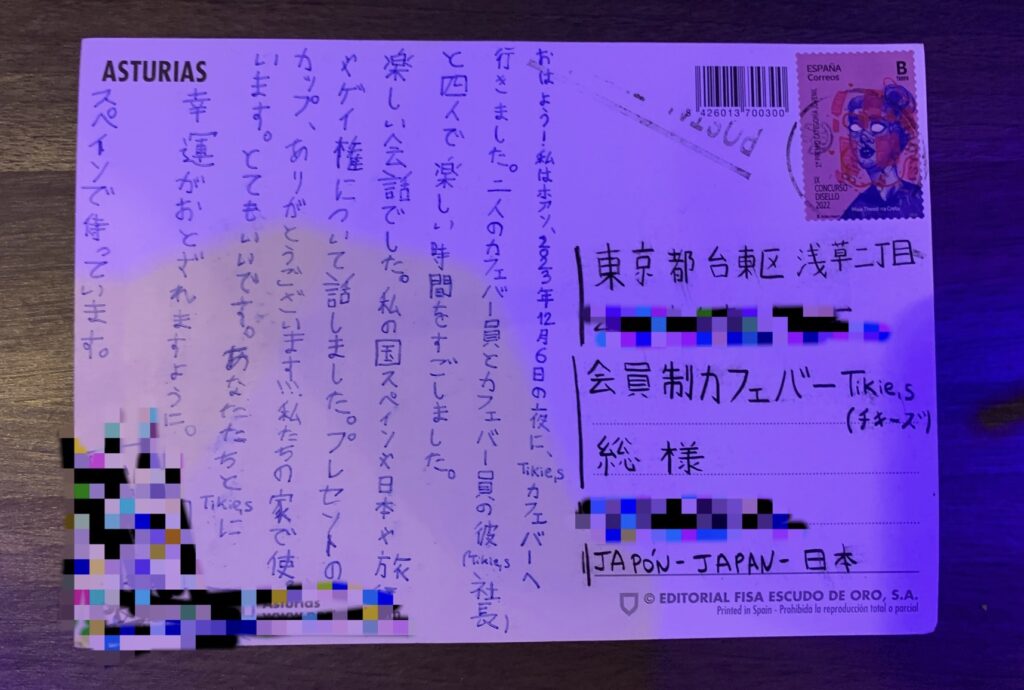 ASTURIAS
おはよう!私はホアン、2023年12月6日の夜に、Tikie,sカフェバーへ
行きました。二人のカフェバー員とカフェバー員の彼(Tikie,s社長)
と四人で楽しい時間をすごしました。
楽しい会話でした。私の国スペインや日本や旅
やゲイ権について話しました。プレセントの
カップ、ありがとうございます!!!私たちの家で使
います。とてもいいです。あなたたちとTikie,sに
幸運がおとずれますように。
スペインで待っています。
Asturias
8 426013 700300
POSTAL
ESPAÑA
Correos
B
TARIFA
IX
CONCURSO
DISELLO
2022
東京都台東区浅草二丁目
会員制カフェバーTikie,s
(チキーズ)
総様
JAPÓN-JAPAN-日本
© EDITORIAL FISA ESCUDO DE ORO, S.A.
Printed in Spain - Prohibida la reproducción total o parcial